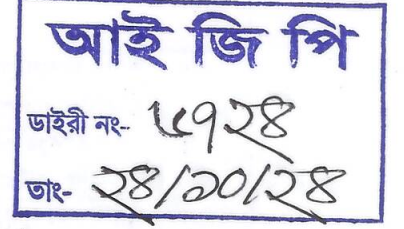 আই জি পি
ডাইরী নং- ৮৭২৪
তাং- ২৪/১০/২৪